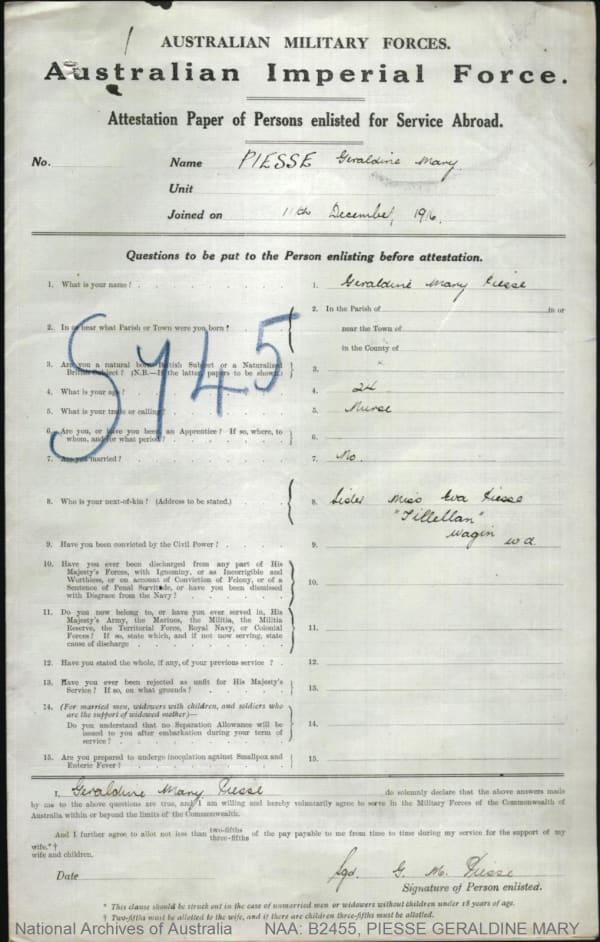 AUSTRALIAN MILITARY FORCES.
Australian Imperial Force.
Attestation Paper of Persons enlisted for Service Abroad.
No. Name PIESSE Geraldine Mary
Unit
Joined on 11th December, 1916.
Questions to be put to the Person enlisting before attestation.
1. What is your name? 1. Geraldine Mary Piesse
2. In or near what Parish or Town were you born? 2. In the Parish of in or
near the Town of
in the County of
3. Are you a natural born British Subject or a Naturalized
British Subject? (N.B.—If the latter, papers to be shown.) 3.
4. What is your age? 4. 24
5. What is your trade or calling? 5. Nurse
6. Are you, or have you been, an Apprentice? If so, where, to
whom, and for what period? 6.
7. Are you married? 7. No.
SY45
8. Who is your next-of-kin? (Address to be stated.) 8. Sister Miss Eva Piesse
"Tillellan"
Wagin W.A.
9. Have you been convicted by the Civil Power? 9.
10. Have you ever been discharged from any part of His
Majesty's Forces, with Ignominy, or as Incorrigible and
Worthless, or on account of Conviction of Felony, or of a
Sentence of Penal Servitude, or have you been dismissed
with Disgrace from the Navy? 10.
11. Do you now belong to, or have you ever served in, His
Majesty's Army, the Marines, the Militia, the Militia
Reserve, the Territorial Force, Royal Navy, or Colonial
Forces? If so, state which, and if not now serving, state
cause of discharge 11.
12. Have you stated the whole, if any, of your previous service? 12.
13. Have you ever been rejected as unfit for His Majesty's
Service? If so, on what grounds? 13.
14. (For married men, widowers with children, and soldiers who
are the support of widowed mother)—
Do you understand that no Separation Allowance will be
issued to you after embarkation during your term of
service? 14.
15. Are you prepared to undergo inoculation against Smallpox and
Enteric Fever? 15.
I, Geraldine Mary Piesse do solemnly declare that the above answers made
by me to the above questions are true, and I am willing and hereby voluntarily agree to serve in the Military Forces of the Commonwealth of
Australia within or beyond the limits of the Commonwealth.
And I further agree to allot not less than two-fifths three-fifths of the pay payable to me from time to time during my service for the support of my
wife.*†
wife and children.
Sgd. G. M. Piesse
Date Signature of Person enlisted.
* This clause should be struck out in the case of unmarried men or widowers without children under 18 years of age.
† Two-fifths must be allotted to the wife, and if there are children three-fifths must be allotted.
National Archives of Australia NAA: B2455, PIESSE GERALDINE MARY